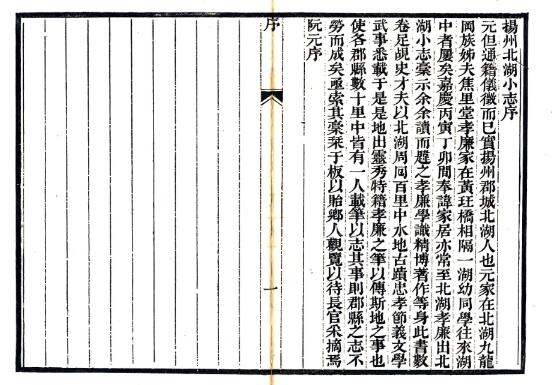 揚州北湖小志序
元但通籍儀徵而已實揚州郡城北湖人也元家在北湖九龍
岡族姊夫焦里堂孝廉家在黃玨橋相隔一湖幼同學往來湖
中者屢矣嘉慶丙寅丁卯間奉諱家居亦常至北湖孝廉出北
湖小志稾示余余讀而韙之孝廉學識精博著作等身此書數
卷足覘史才夫以北湖周圓百里中水地古蹟忠孝節義文學
武事悉載于是是地出靈秀特籍孝廉之筆以傳斯地之事也
使各郡縣數十里中皆有一人載筆以志其事則郡縣之志不
勞而成矣亟索其稾栞于板以貽鄉人觀覽以待長官采摘焉
阮元序
序
一